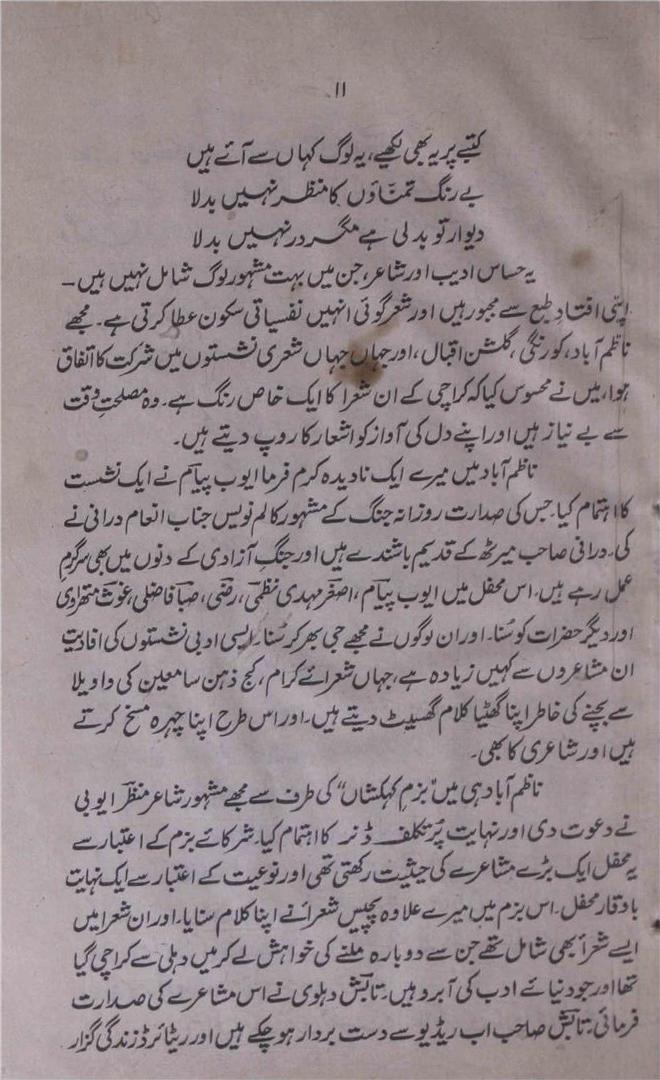 ۱۱
کتبے پر یہ بھی لکھیے، یہ لوگ کہاں سے آئے ہیں
بے رنگ تمنّاؤں کا منظر نہیں بدلا
دیوار تو بدلی ہے مگر در نہیں بدلا
یہ حساس ادیب اور شاعر، جن میں بہت مشہور لوگ شامل نہیں ہیں۔
اپنی افتادِ طبع سے مجبور ہیں اور شعر گوئی انہیں نفسیاتی سکون عطا کرتی ہے۔ مجھے
ناظم آباد، کورنگی، گلشن اقبال، اور جہاں جہاں شعری نشستوں میں شرکت کا اتفاق
ہوا، میں نے محسوس کیا کہ کراچی کے ان شعرا کا ایک خاص رنگ ہے۔ وہ مصلحتِ وقت
سے بے نیاز ہیں اور اپنے دل کی آواز کو اشعار کا روپ دیتے ہیں۔
ناظم آباد میں میرے ایک نادیدہ کرم فرما ایوب پیامؔ نے ایک نشست
کا اہتمام کیا۔ جس کی صدارت روزانہ جنگ کے مشہور کالم نویس جناب انعام درانی نے
کی۔ درانی صاحب میرٹھ کے قدیم باشندے ہیں اور جنگِ آزادی کے دنوں میں بھی سرگرمِ
عمل رہے ہیں۔ اس محفل میں ایوب پیامؔ، اصغر مہدی نظمیؔ، رضیؔ، صباؔ فاضلی، غوثؔ متھراوی
اور دیگر حضرات کو سُنا۔ اور ان لوگوں نے مجھے جی بھر کر سُنا۔ ایسی ادبی نشستوں کی افادیت
ان مشاعروں سے کہیں زیادہ ہے، جہاں شعرائے کرام، کج ذہن سامعین کی واویلا
سے بچنے کی خاطر اپنا گھٹیا کلام گھسیٹ دیتے ہیں۔ اور اس طرح اپنا چہرہ مسخ کرتے
ہیں اور شاعری کا بھی۔
ناظم آباد ہی میں ”بزمِ کہکشاں“ کی طرف سے مجھے مشہور شاعر منظرؔ ایوبی
نے دعوت دی اور نہایت پُرتکلف ڈنر کا اہتمام کیا۔ شرکائے بزم کے اعتبار سے
یہ محفل ایک بڑے مشاعرے کی حیثیت رکھتی تھی اور نوعیت کے اعتبار سے ایک نہایت
باوقار محفل۔ اس بزم میں میرے علاوہ پچیس شعرأ نے اپنا کلام سنایا۔ اور ان شعرا میں
ایسے شعرأ بھی شامل تھے جن سے دوبارہ ملنے کی خواہش لے کر میں دہلی سے کراچی گیا
تھا اور جو دنیائے ادب کی آبرو ہیں۔ تابشؔ دہلوی نے اس مشاعرے کی صدارت
فرمائی۔ تابشؔ صاحب اب ریڈیو سے دست بردار ہو چکے ہیں اور ریٹائرڈ زندگی گزار